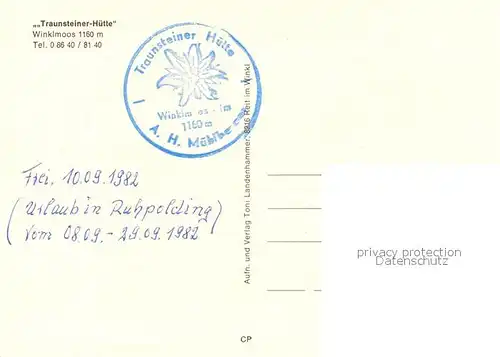 „„Traunsteiner-Hütte"
Winklmoos 1160 m
Tel. 0 86 40 / 81 40
Traunsteiner Hütte
Winklm os - lm
1160 m
A. H. Mühlbe
Frei, 10.09.1982
(Urlaub in Ruhpolding)
Vom 08.09. - 29.09.1982
Aufn. und Verlag Toni Landenhammer, 8216 Reit im Winkl
privacy protection
Datenschutz
CP